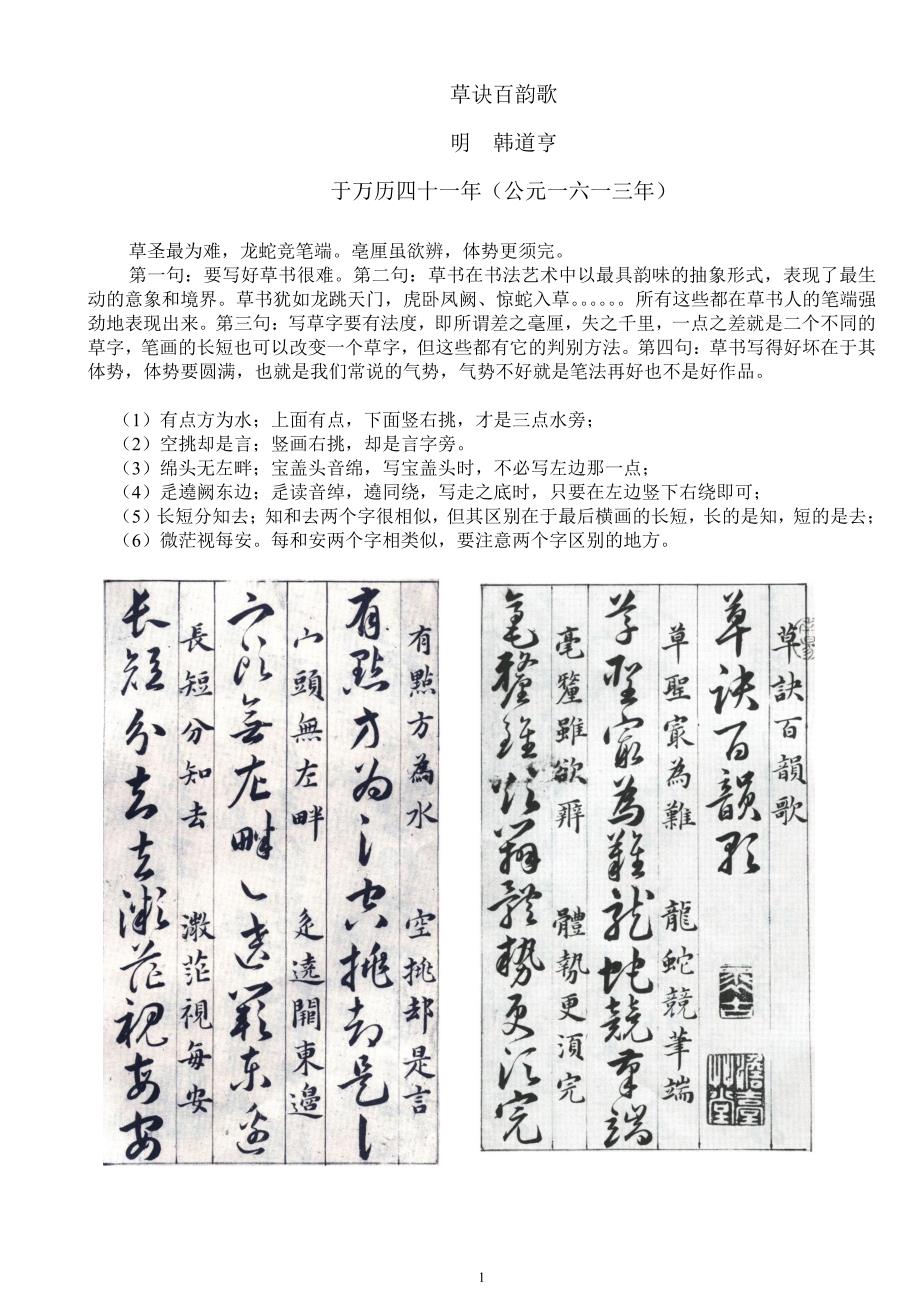 草诀百韵歌
明 韩道亨
于万历四十一年（公元一六一三年）
草圣最为难，龙蛇竞笔端。毫厘虽欲辨，体势更须完。
第一句：要写好草书很难。第二句：草书在书法艺术中以最具韵味的抽象形式，表现了最生
动的意象和境界。草书犹如龙跳天门，虎卧凤阙、惊蛇入草。。。。。。所有这些都在草书人的笔端强
劲地表现出来。第三句：写草字要有法度，即所谓差之毫厘，失之千里，一点之差就是二个不同的
草字，笔画的长短也可以改变一个草字，但这些都有它的判别方法。第四句：草书写得好坏在于其
体势，体势要圆满，也就是我们常说的气势，气势不好就是笔法再好也不是好作品。
（1）有点方为水；上面有点，下面竖右挑，才是三点水旁；
（2）空挑却是言；竖画右挑，却是言字旁。
（3）绵头无左畔；宝盖头音绵，写宝盖头时，不必写左边那一点；
（4）辵遶阙东边；辵读音绰，遶同绕，写走之底时，只要在左边竖下右绕即可；
（5）长短分知去；知和去两个字很相似，但其区别在于最后横画的长短，长的是知，短的是去；
（6）微茫视每安。每和安两个字相类似，要注意两个字区别的地方。
草訣百韻歌
草訣百韻歌
草聖最為難 龍蛇競筆端
草聖最為難龍蛇競筆端
毫釐雖欲辨 體勢更須完
毫釐雖欲辨體勢更須完
有點方為水 空挑却是言
有點方為氵空挑却是言
宀頭無左畔 辵遶闕東邊
宀頭無左畔辶遶闕東邊
長短分知去 微茫視每安
長短分知去微茫視每安
1